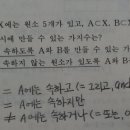 X에는 원소 5개가 있고, A⊂X, B⊂X
시에 만들 수 있는 가지수는?
속하도록 A와 B를 만들 수 있는 가
속하지 않는 원소가 있도록 A와 B
= A에는 속하고 (= 그리고, and
= A에는 속하지만
≠ A에는 속하거나 (= 또는, o